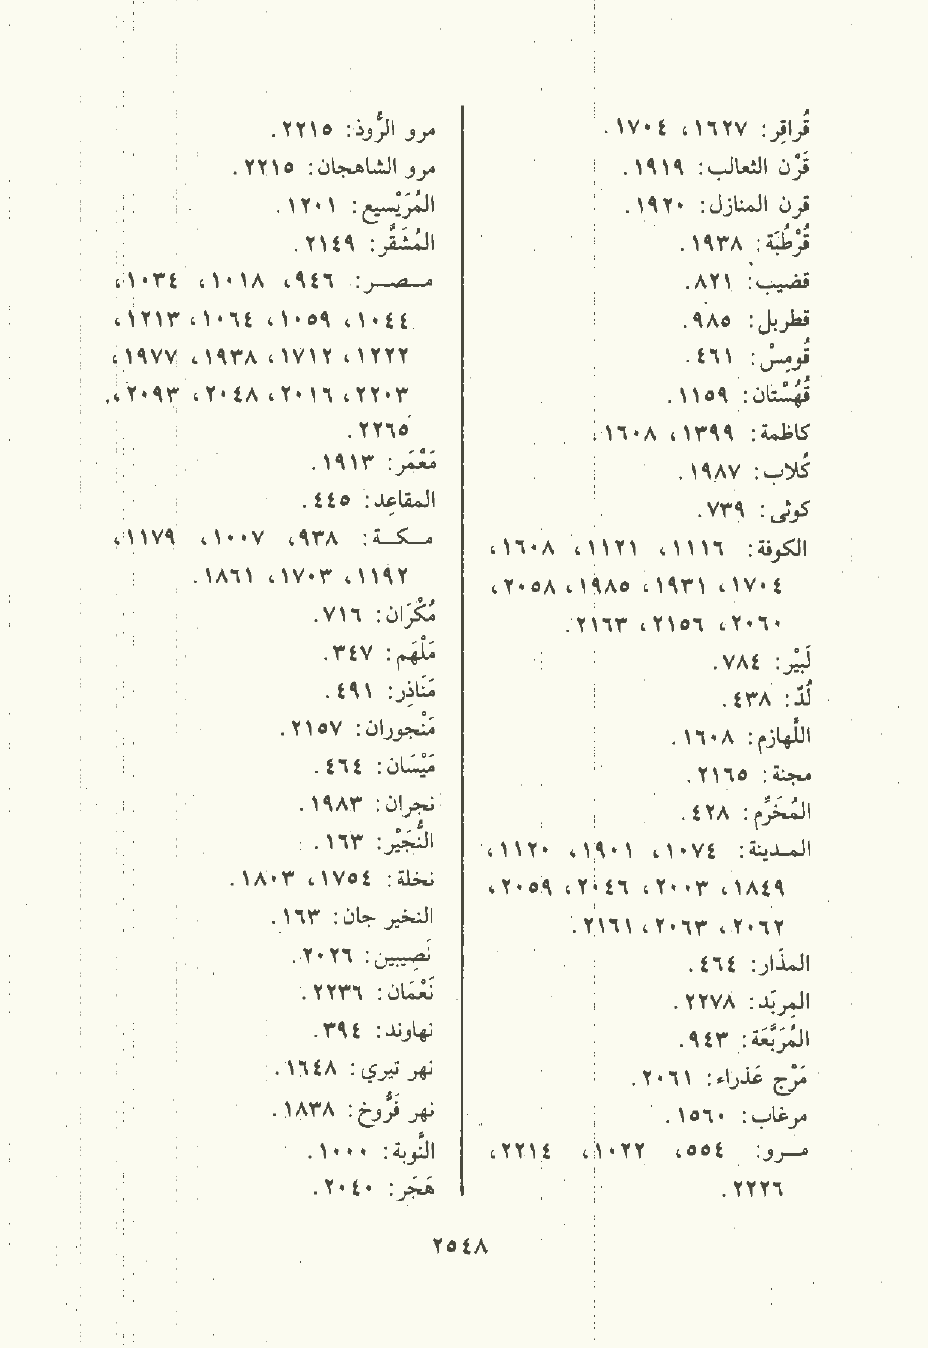 قُراقِر: ١٦٢٧، ١٧٠٤.
قَرْن الثعالب: ١٩١٩.
قرن المنازل: ١٩٢٠.
قُرْطُبَة: ١٩٣٨.
قضيب: ٨٢١.
قطربل: ٩٨٥.
قُومِسْ: ٤٦١.
قُهُسْتان: ١١٥٩.
كاظمة: ١٣٩٩، ١٦٠٨.
كُلاب: ١٩٨٧.
كوثى: ٧٣٩.
الكوفة: ١١١٦، ١١٢١، ١٦٠٨،
١٧٠٤، ١٩٣١، ١٩٨٥، ٢٠٥٨،
٢٠٦٠، ٢١٥٦، ٢١٦٣.
لَبِيْر: ٧٨٤.
لُدّ: ٤٣٨.
اللَّهازم: ١٦٠٨.
مجنة: ٢١٦٥.
المُخَرِّم: ٤٢٨.
المدينة: ١٠٧٤، ١٩٠١، ١١٢٠،
١٨٤٩، ٢٠٠٣، ٢٠٤٦، ٢٠٥٩،
٢٠٦٢، ٢٠٦٣، ٢١٦١.
المذَار: ٤٦٤.
المِربَد: ٢٢٧٨.
المُرَبَّعَة: ٩٤٣.
مَرْج عَذراء: ٢٠٦١.
مرغاب: ١٥٦٠.
مرو: ٥٥٤، ١٠٢٢، ٢٢١٤،
٢٢٢٦.
مرو الرُّوذ: ٢٢١٥.
مرو الشاهجان: ٢٢١٥.
المُرَيْسيع: ١٢٠١.
المُشَقَّر: ٢١٤٩.
مصر: ٩٤٦، ١٠١٨، ١٠٣٤،
١٠٤٤، ١٠٥٩، ١٠٦٤، ١٢١٣،
١٢٢٢، ١٧١٢، ١٩٣٨، ١٩٧٧،
٢٢٠٣، ٢٠١٦، ٢٠٤٨، ٢٠٩٣،
٢٢٦٥.
مَعْمَر: ١٩١٣.
المقاعِد: ٤٤٥.
مكة: ٩٣٨، ١٠٠٧، ١١٧٩،
١١٩٢، ١٧٠٣، ١٨٦١.
مُكْرَان: ٧١٦.
مَلْهَم: ٣٤٧.
مَنَاذِر: ٤٩١.
مَنْجوران: ٢١٥٧.
مَيْسَان: ٤٦٤.
نجران: ١٩٨٣.
النُّجَيْر: ١٦٣.
نخلة: ١٧٥٤، ١٨٠٣.
النخير جان: ١٦٣.
نَصِيبين: ٢٠٢٦.
نَعْمَان: ٢٢٣٦.
نهاوند: ٣٩٤.
نهر تيري: ١٦٤٨.
نهر فَرُّوخ: ١٨٣٨.
النَّوبة: ١٠٠٠.
هَجَر: ٢٠٤٠.
٢٥٤٨